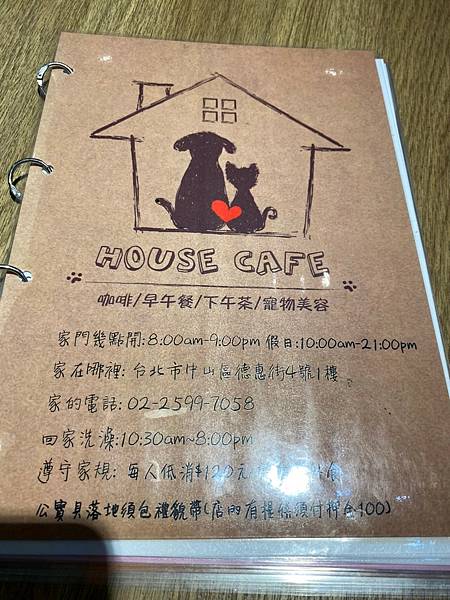 HOUSE CAFE
咖啡/早午餐/下午茶/寵物美容
家門幾點開:8:00am-9:00pm 假日:10:00am-21:00pm
家在哪裡: 台北市中山區德惠街4號1樓
家的電話: 02-2599-7058
回家洗澡:10:30am~8:00pm
遵守家規: 每人低消$120元 食
公寶貝落地須包禮貌帶(店內有提 須付押金100)